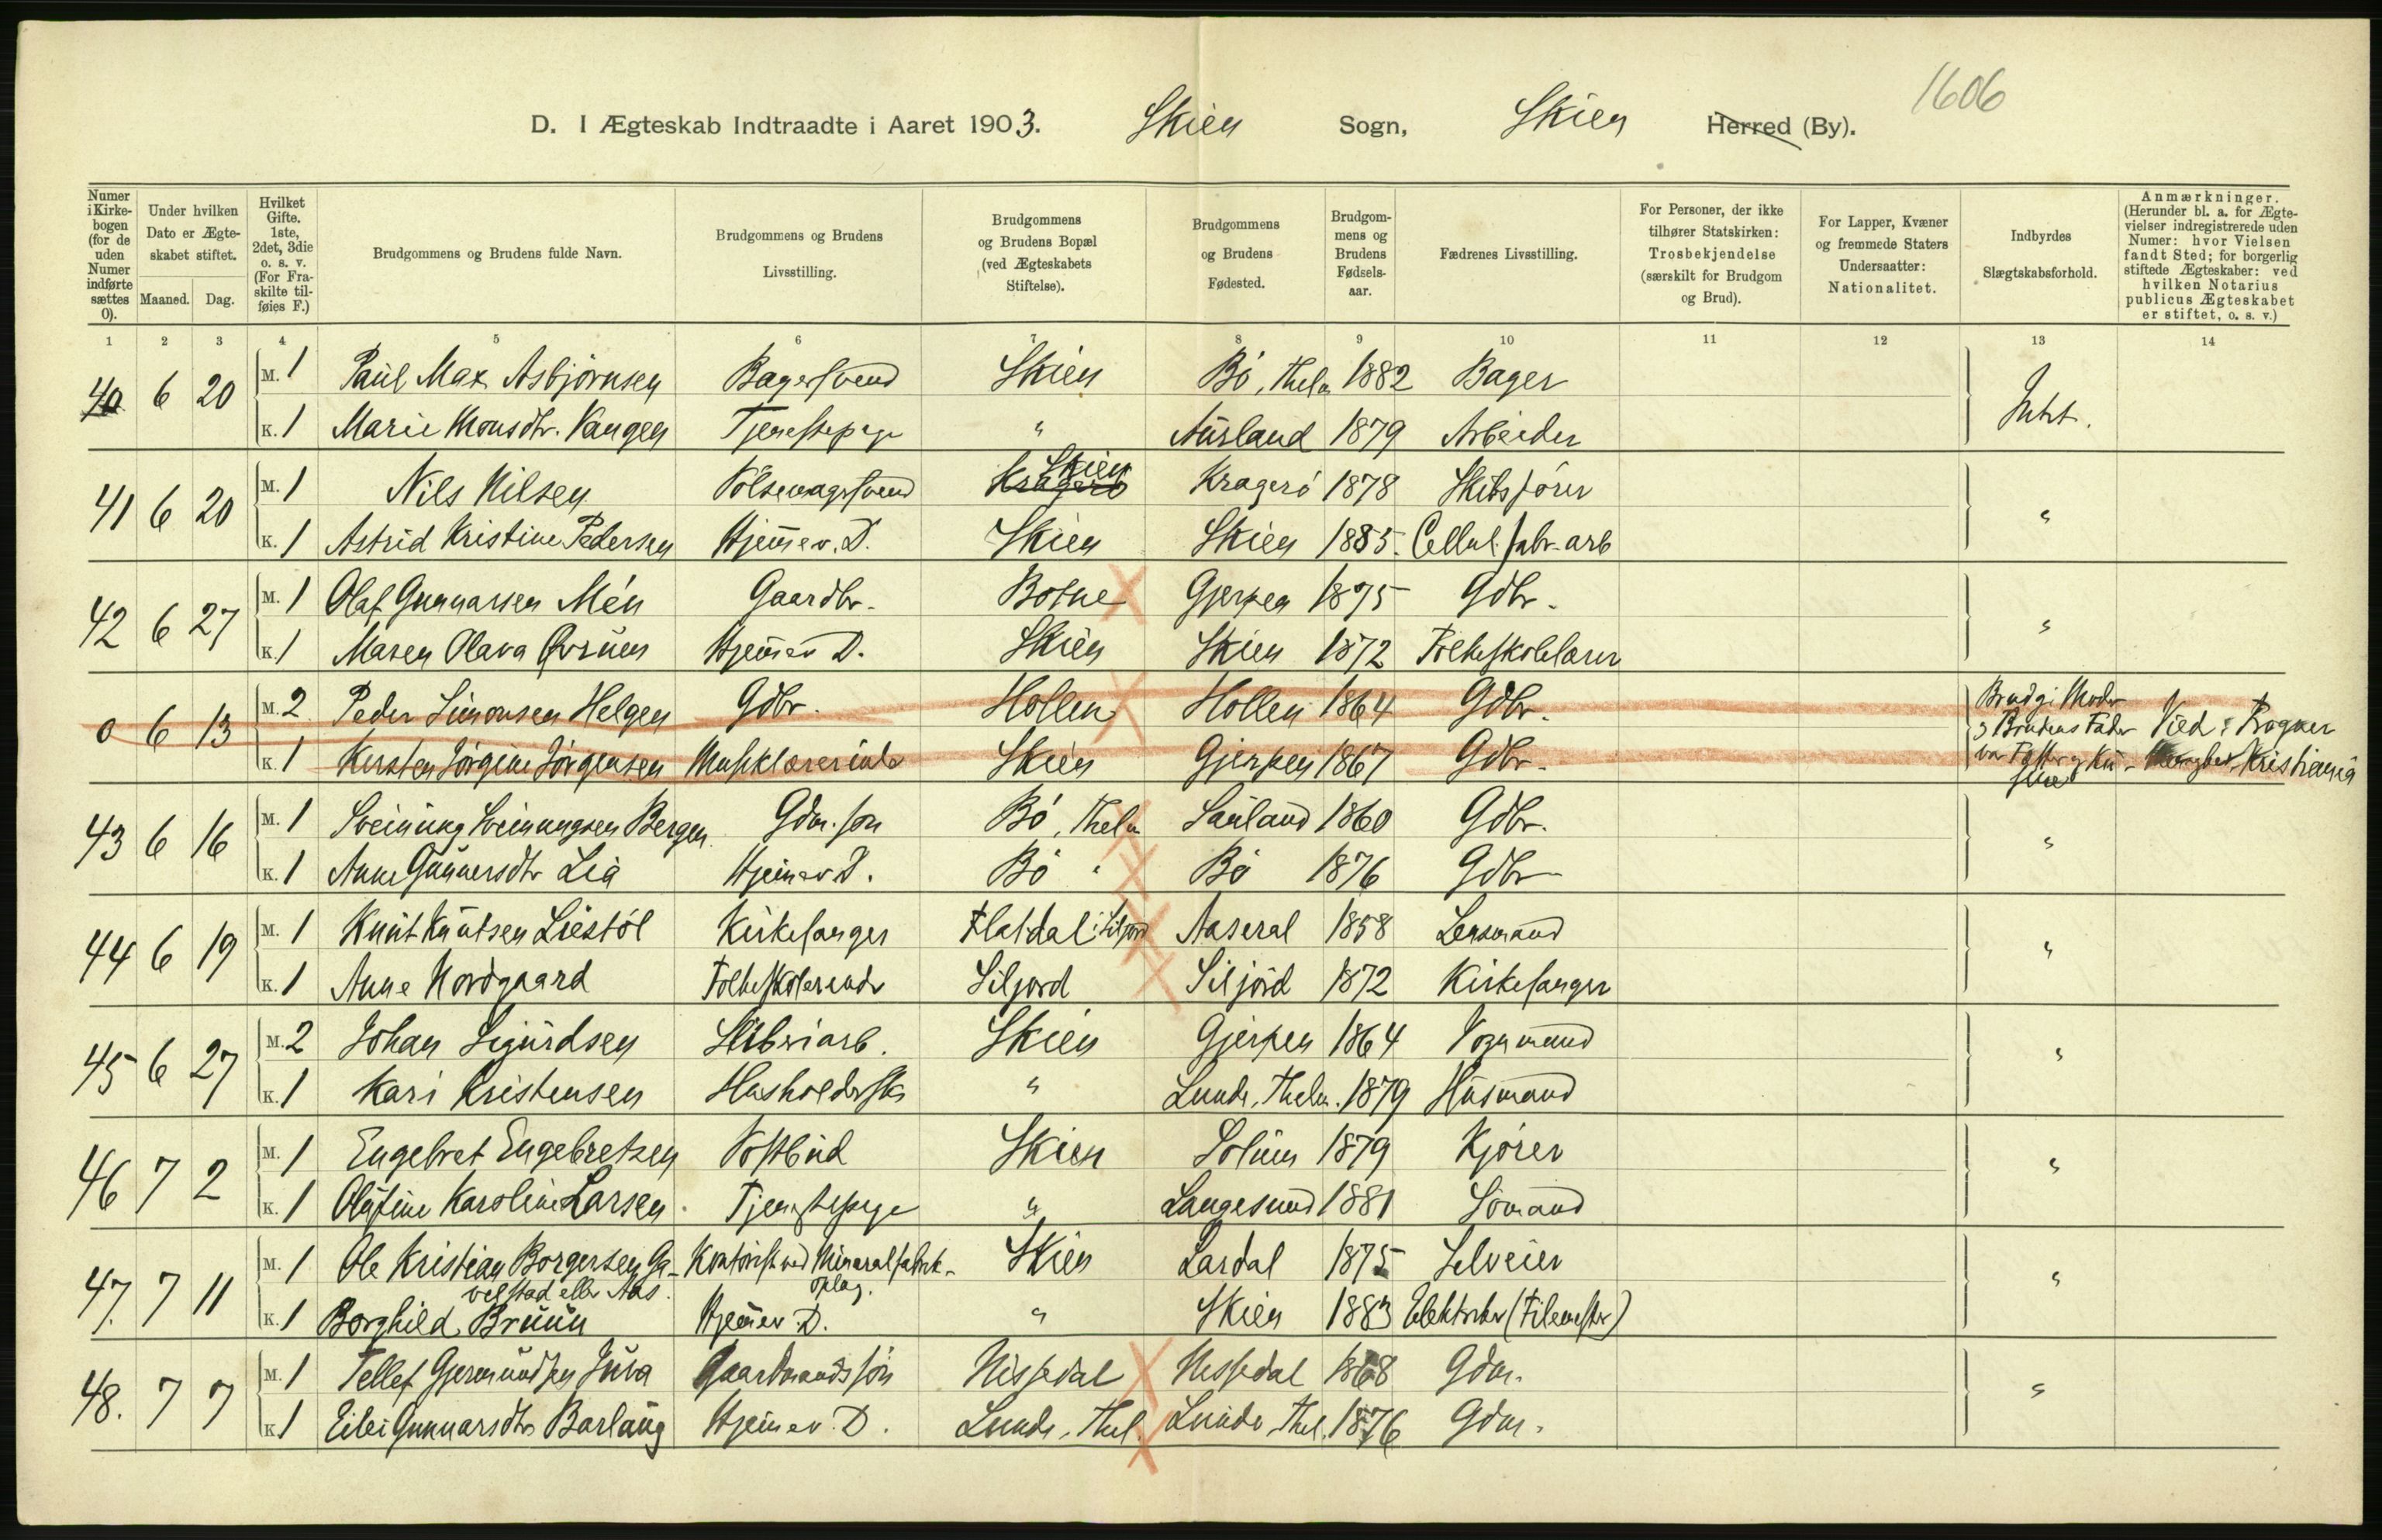 1606
D. I Ægteskab Indtraadte i Aaret 1903. Skien Sogn, Skien Herred (By).
Numer i Kirkebogen (for de uden Numer indførte sættes 0).
Under hvilken Dato er Ægteskabet stiftet.
Maaned. Dag.
Hvilket Gifte. 1ste, 2det, 3die o. s. v. (For Fraskilte tilføies F.)
Brudgommens og Brudens fulde Navn.
Brudgommens og Brudens Livsstilling.
Brudgommens og Brudens Bopæl (ved Ægteskabets Stiftelse).
Brudgommens og Brudens Fødested.
Brudgommens og Brudens Fødselsaar.
Fædrenes Livsstilling.
For Personer, der ikke tilhører Statskirken: Trosbekjendelse (særskilt for Brudgom og Brud).
For Lapper, Kvæner og fremmede Staters Undersaatter: Nationalitet.
Indbyrdes Slægtskabsforhold.
Anmærkninger. (Herunder bl. a. for Ægtevielser indregistrerede uden Numer: hvor Vielsen fandt Sted; for borgerlig stiftede Ægteskaber: ved hvilken Notarius publicus Ægteskabet er stiftet, o. s. v.)
1 2 3 4 5 6 7 8 9 10 11 12 13 14
40 6 20 M. 1 Paul Max Asbjørnsen Bagersvend Skien Bö, Thelm 1882 Bager Intet.
K. 1 Marie Monsdtr. Vangen Tjenestepige " Aurland 1879 Arbeider
41 6 20 M. 1 Nils Nilsen Pölsemagersvend Kragerö Skien Kragerö 1878 Skibsförer "
K. 1 Astrid Kristine Pedersen Hjemmev. D. Skien Skien 1885. Cellul. fabr. arb
42 6 27 M. 1 Olaf Gunnarsen Mén Gaardbr. Botne Gjerpen 1875 Gdbr. "
K. 1 Maren Olava Ovrum Hjemmev D. Skien Skien 1872 Folkeskolelærer
0 6 13 M. 2 Peder Simonsen Helgen Gdbr. Hollen Hollen 1864 Gdbr. Brudg. Moder
K. 1 Kirsten Jörgine Jörgensen Musiklærerinde Skien Gjerpen 1867 Gdbr. Brudens Fader Kristiania
43 6 16 M. 1 Sveinung Sveinungsen Bergen Gdm. sön Bö, Thelm Sauland 1860 Gdbr. "
K. 1 Anne Gunnersdtr Lia Hjemmev D. Bö " Bö 1876 Gdbr
44 6 19 M. 1 Knut Knutsen Liestöl Kirkesanger Flatdal i Siljord Aaseral 1858 Lensmand "
K. 1 Anne Nordgaard Siljord Siljord 1872 Kirkesanger
45 6 27 M. 2 Johan Sigurdsen Sliberiarb. Skien Gjerpen 1864 Vognmand "
K. 1 Kari Kristensen Husholderske " Lunde, Thelm. 1879 Husmand
46 7 2 M. 1 Engebret Engebretsen Postbud Skien Solum 1879 Kjörer "
K. 1 Olufine Karoline Larsen Tjenestepige " Langesund 1881 Sömand
47. 7 11 M. 1 Ole Kristian Borgersen Ga-velstad eller Aas. Kontorist ved Mineralfabrik- Skien Lardal 1875 Selveier "
K. 1 Borghild Bruun Hjemmev. D. " Skien 1883 Elektriker (Filemester)
48. 7 7 M. 1 Tellef Gjermundsen Juva Gaardmandssön Nissedal Nissedal 1868 Gdm. "
K. 1 Eilei Gunnarsdtr Barlaug Hjemmev. D. Lunde, Thel. Lunde, Thel. 1876 Gdm.